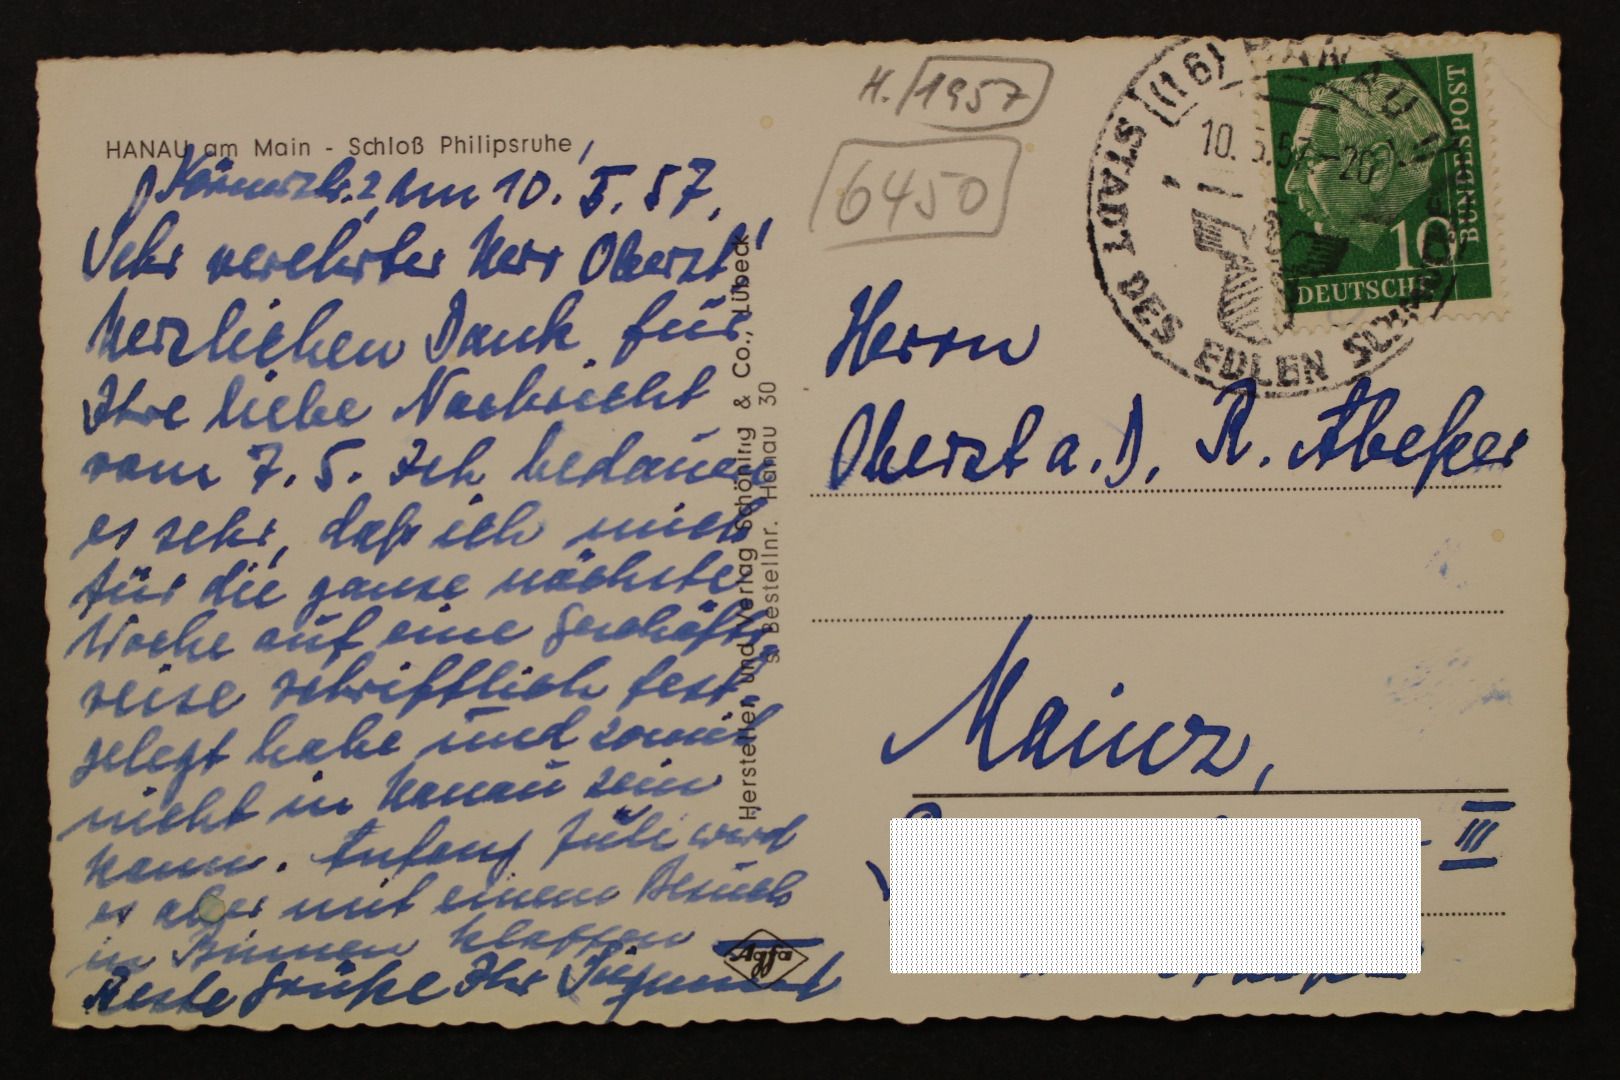 HANAU am Main - Schloß Philipsruhe
am 10. 5. 57.
Sehr verehrter Herr Oberst!
Herzlichen Dank für
Ihre liebe Nachricht
vom 7. 5. Ich bedauere
es sehr, daß ich mich
für die ganze nächste
Woche auf eine Geschäfts
reise schriftlich fest
gelegt habe und somit
nicht in Hanau sein
kann. Anfang Juli wird
es aber mit einem Besuch
in klappen
Beste Grüße Ihr
Hersteller und Verlag Schöning & Co., Lübeck
s Bestellnr. Hanau 30
Agfa
H. 1957
6450
(16) HANAU
10. 5. 57 - 20
STADT DES EDLEN SCHMUCKES
10
DEUTSCHE
BUNDESPOST
Herrn
Oberst a. D. R.
Mainz,
III